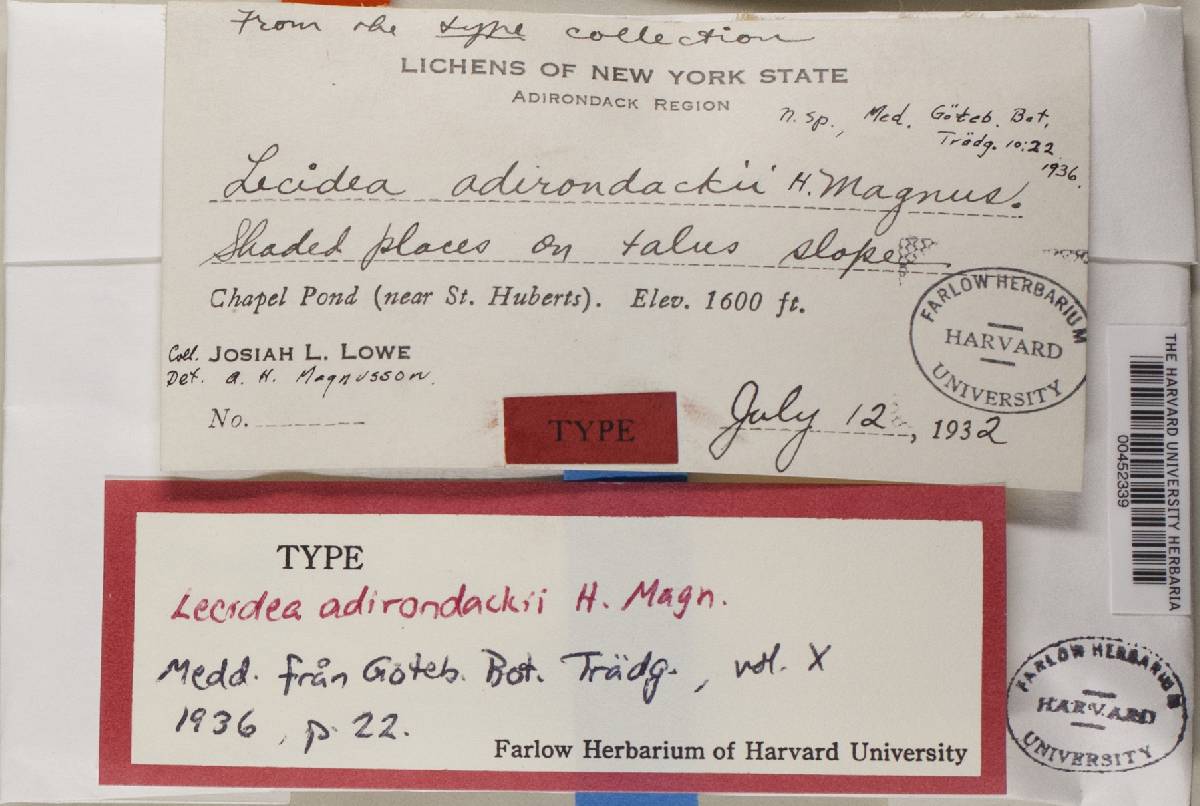 From the type collection
LICHENS OF NEW YORK STATE
ADIRONDACK REGION
n. sp., Med. Göteb. Bot.
Trädg. 10:22
1936.
Lecidea adirondackii H. Magnus.
Shaded places on talus slope
Chapel Pond (near St. Huberts). Elev. 1600 ft.
Coll. JOSIAH L. LOWE
Det. A. H. Magnusson.
No.
TYPE
July 12, 1932
FARLOW HERBARIUM
HARVARD
UNIVERSITY
THE HARVARD UNIVERSITY HERBARIA
00452339
TYPE
Lecidea adirondackii H. Magn.
Medd. från Göteb. Bot. Trädg., vol. X
1936, p. 22.
Farlow Herbarium of Harvard University
FARLOW HERBARIUM
HARVARD
UNIVERSITY